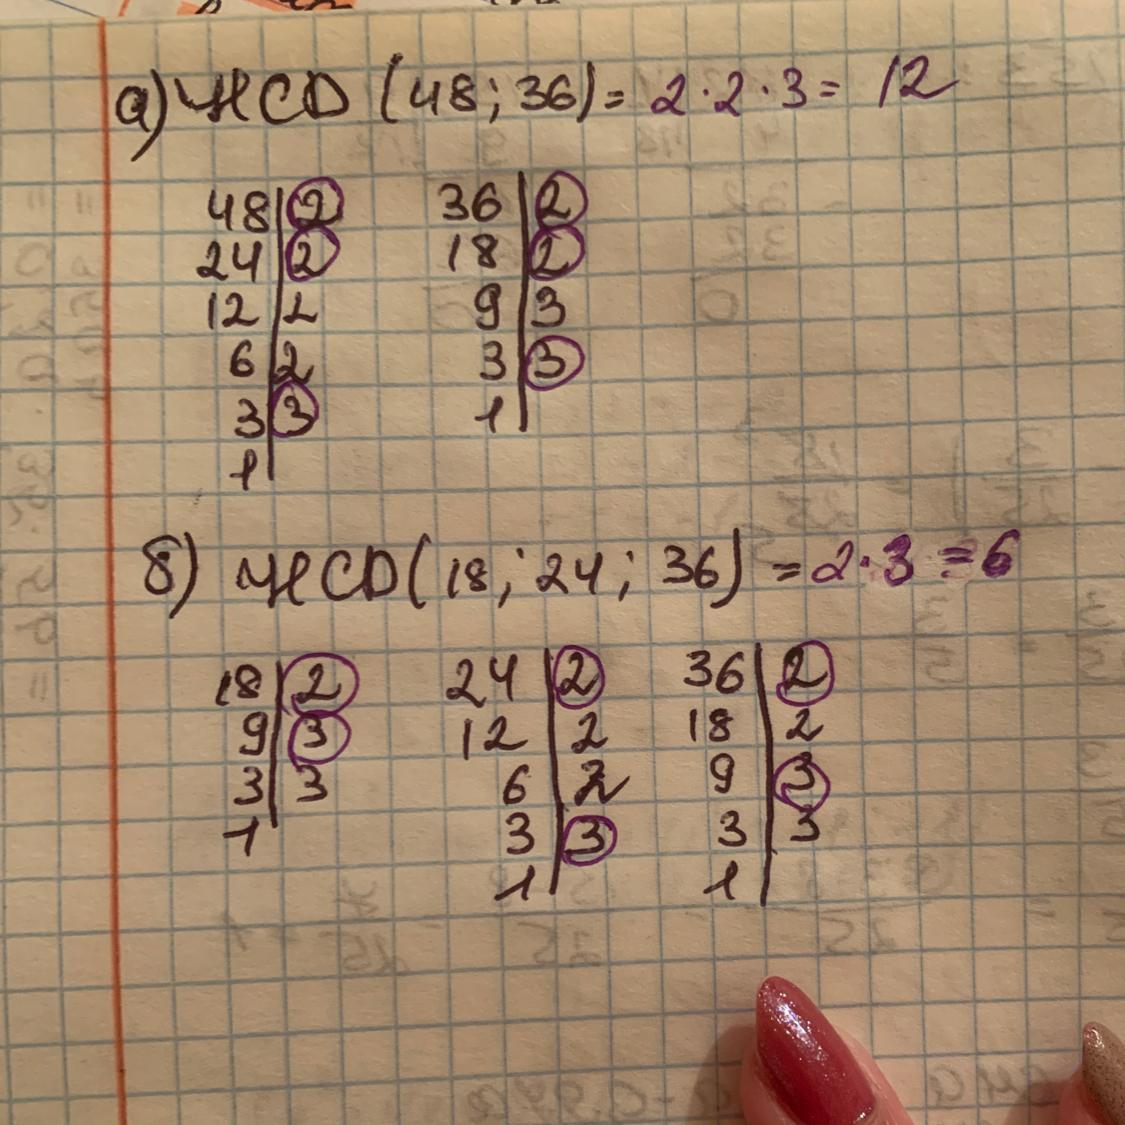 а) НСD (48; 36) = 2·2·3 = 12
48 | 2 36 | 2
24 | 2 18 | 2
12 | 2 9 | 3
6 | 2 3 | 3
3 | 3 1 |
1 |
б) НСD (18; 24; 36) = 2·3 = 6
18 | 2 24 | 2 36 | 2
9 | 3 12 | 2 18 | 2
3 | 3 6 | 2 9 | 3
1 3 | 3 3 | 3
1 | 1 |